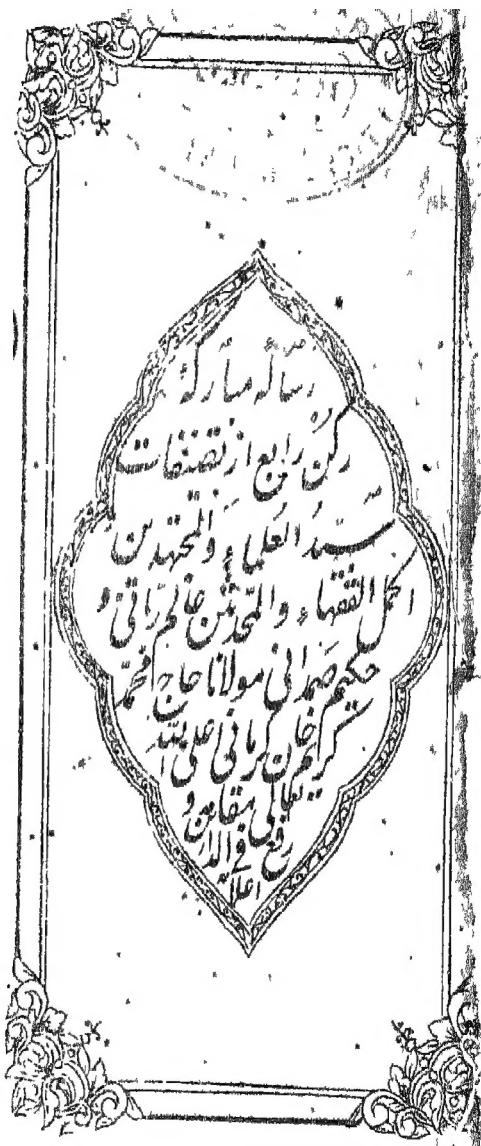 رساله مبارکهٔ
رکن رابع از تصنیفات
سید العلماء و المجتهدین
اکمل الفقهاء و المحدثین عالم ربانی و
حکیم صمدانی مولانا حاج محمد
کریم خان کرمانی اعلی الله
تعالی مقامه و
رفع فی الدار
اعلامه